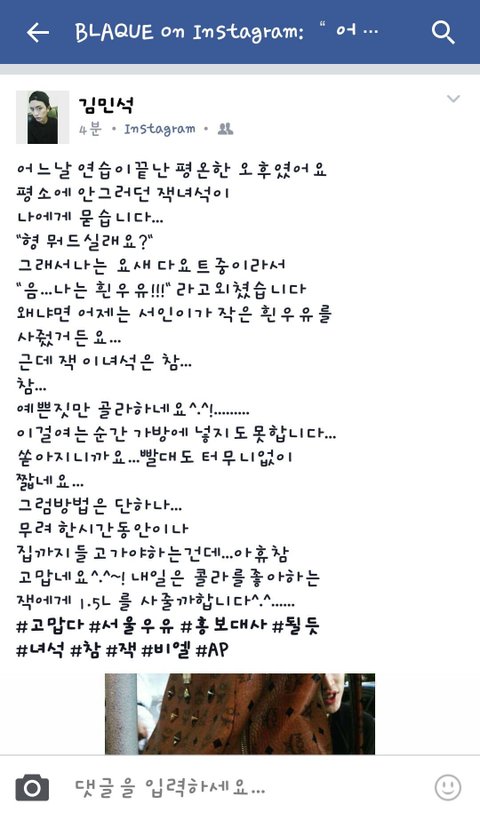 BLAQUE on Instagram: “ 어 …
김민석
4분 • Instagram •
어느날 연습이끝난 평온한 오후였어요
평소에 안그러던 잭녀석이
나에게 묻습니다...
"형 뭐드실래요?"
그래서나는 요새 다요트중이라서
"음...나는 흰우유!!!" 라고외쳤습니다
왜냐면 어제는 서인이가 작은 흰우유를
사줬거든요...
근데 잭 이녀석은 참...
참...
예쁜짓만 골라하네요^.^!.........
이걸여는순간 가방에 넣지도못합니다...
쏟아지니까요...빨대도 터무니없이
짧네요...
그럼방법은 단하나...
무려 한시간동안이나
집까지들고가야하는건데...아휴참
고맙네요^.^~! 내일은 콜라를좋아하는
잭에게 1.5L 를 사줄까합니다^.^......
#고맙다 #서울우유 #홍보대사 #될듯
#녀석 #참 #잭 #비엘 #AP
댓글을 입력하세요...